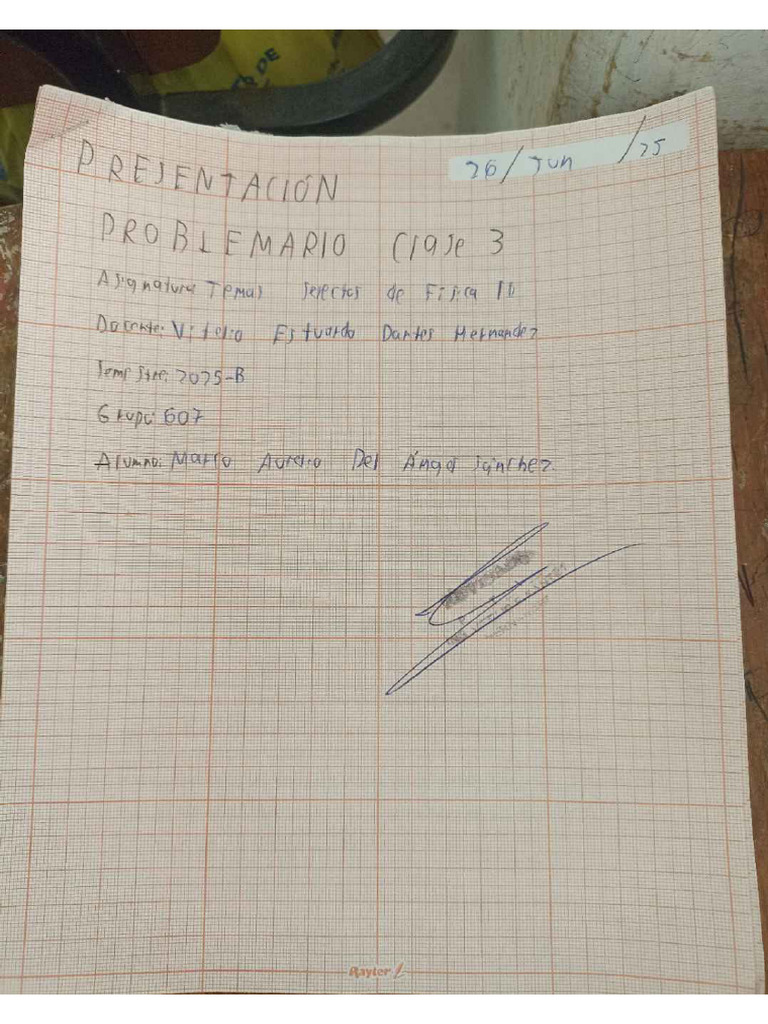 DE
26/Jun/25
PRESENTACIÓN
PROBLEMARIO Clase 3
Asignatura: Temas selectos de Física II
Docente: Vitelio Estuardo Dantes Hernandez
Semestre: 2025-B
Grupo: 607
Alumno: Marco Aurelio Del Ángel Sánchez.
REVISADO
Rayter